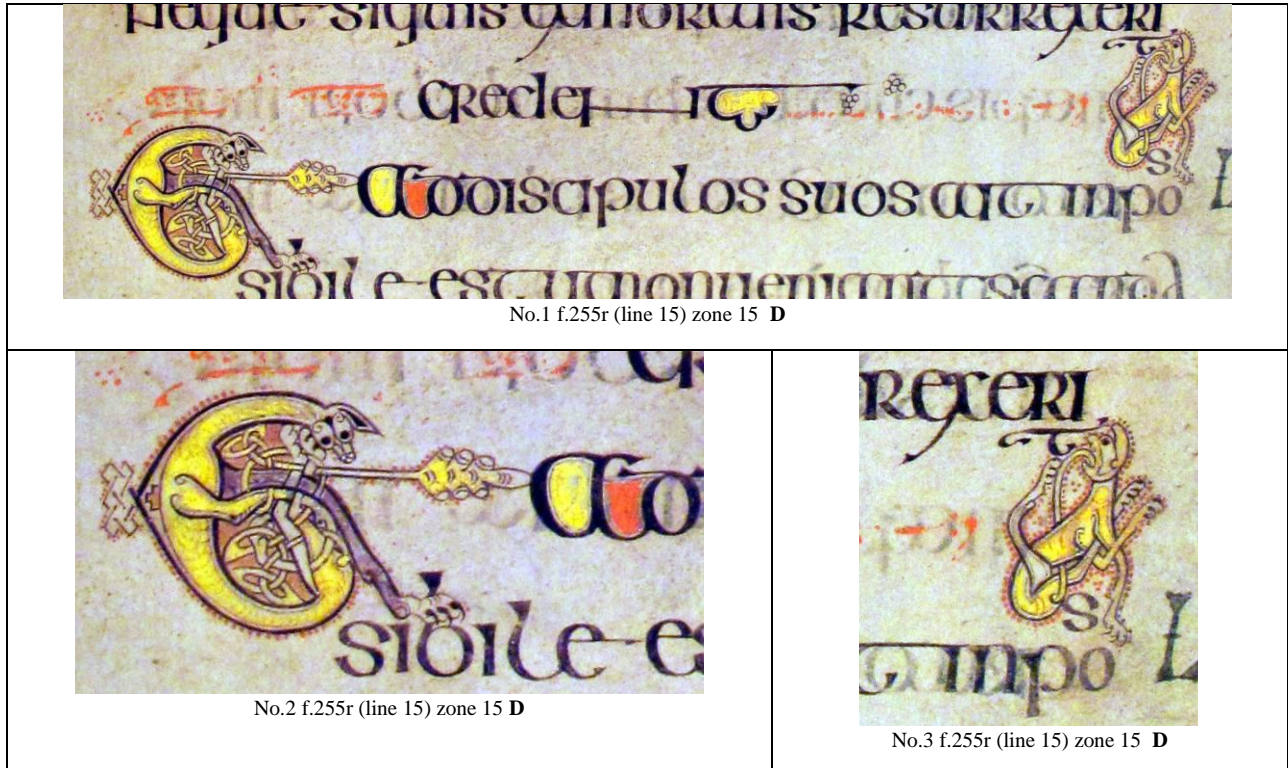 neque siquis exmortuis resurrexeri
t
credent
Et addiscipulos suos ait inpo
s
sibile est ut nonueniant scand
No.1 f.255r (line 15) zone 15 D
cr
Et ad
sibile es
No.2 f.255r (line 15) zone 15 D
rexeri
t
s
t inpo
No.3 f.255r (line 15) zone 15 D